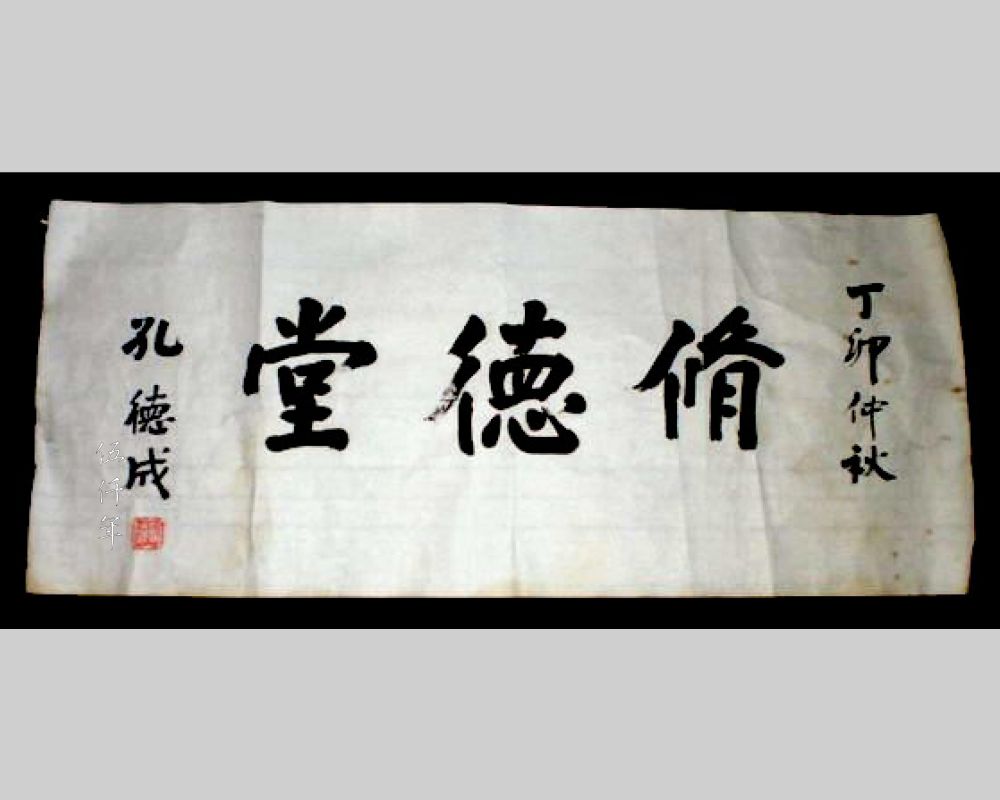 丁卯仲秋
脩德堂
孔德成
伍仟年